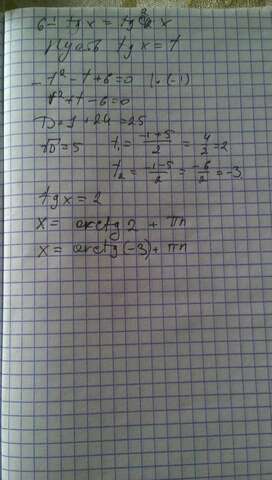 6 - tg x = tg² x
Пусть tg x = t
- t² - t + 6 = 0 | · (-1)
t² + t - 6 = 0
D = 1 + 24 = 25
√D = 5 t₁ = (-1+5)/2 = 4/2 = 2
t₂ = (-1-5)/2 = -6/2 = -3
tg x = 2
x = arctg 2 + πn
x = arctg (-3) + πn